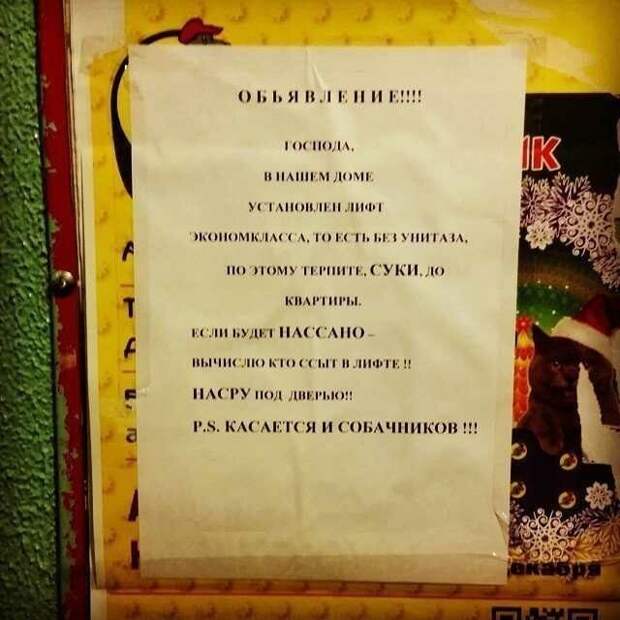 ОБЬЯВЛЕНИЕ!!!!
ГОСПОДА,
В НАШЕМ ДОМЕ
УСТАНОВЛЕН ЛИФТ
ЭКОНОМКЛАССА, ТО ЕСТЬ БЕЗ УНИТАЗА,
ПО ЭТОМУ ТЕРПИТЕ, СУКИ, ДО
КВАРТИРЫ.
ЕСЛИ БУДЕТ НАССАНО –
ВЫЧИСЛЮ КТО ССЫТ В ЛИФТЕ !!
НАСРУ ПОД ДВЕРЬЮ!!
P.S. КАСАЕТСЯ И СОБАЧНИКОВ !!!
ИК
екабря